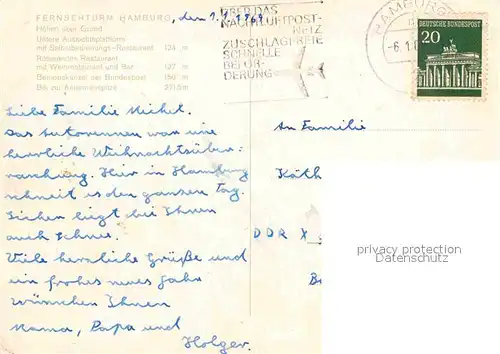 FERNSEHTURM HAMBURG, den 1.1.1969
Höhen über Grund
Untere Aussichtsplattform
mit Selbstbedienungs-Restaurant 124 m
Rotierendes Restaurant
mit Weinrestaurant und Bar 127 m
Betriebskanzel der Bundespost 150 m
Bis zur Antennenspitze 271,5m
Liebe Familie Michel.
Das Autorennen war eine
herrliche Weihnachtsüber-
raschung. Hier in Hamburg
schneit es den ganzen Tag.
Sicher liegt bei Ihnen
auch Schnee.
Viele herzliche Grüße und
ein frohes neues Jahr
wünschen Ihnen
Mama, Papa und
Holger.
ÜBER DAS
NACHTLUFTPOST-
NETZ
ZUSCHLAGFREIE
SCHNELLE
BEFÖR-
DERUNG
HAMBURG
-6.1.
DEUTSCHE BUNDESPOST
20
An Familie
Käth
DDR X
privacy protection
Datenschutz